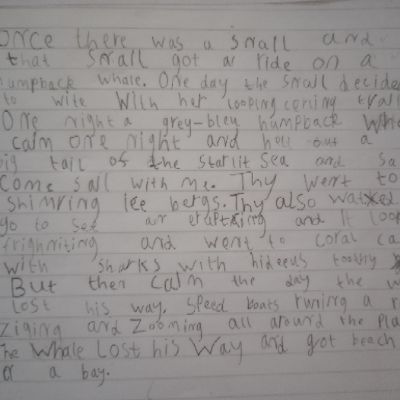 Once there was a snall and
that snall got a ride on a
humpback whale. One day the snall decide
to wite With her looping coning trall
One night a grey-bley humpback wha
calm one night and hell out a
big tail of the starlit sea and sa
Come sall with me. Thy went to
shimring ice bergs. Thy also watxed
go to see an erupting and it loop
frighniting and went to coral ca
with sharks with hideeus toothy
But then Calm the day the w
lost his way. Speed boats runing a r
Ziging and Zooming all around the Pla
The Whale Lost his Way and got beach
or a bay.